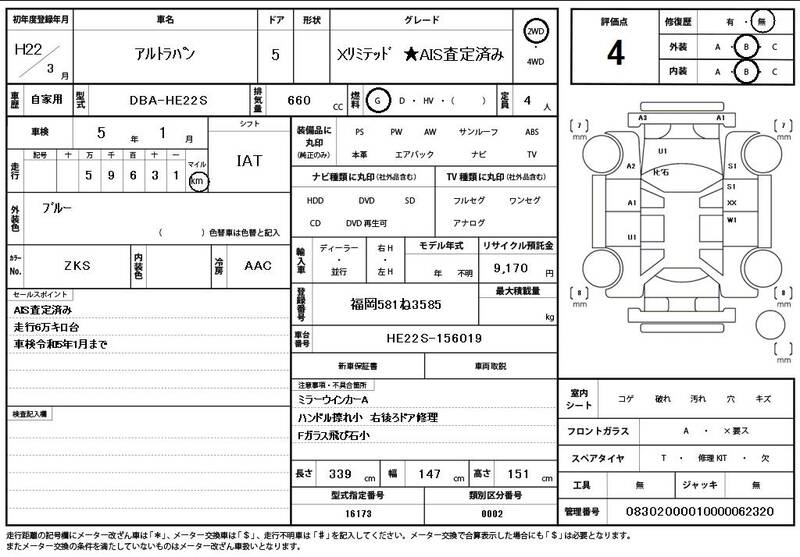 初年度登録年月 車名 ドア 形状 グレード
H22 / 3 月 アルトラパン 5 Xリミテッド ★AIS査定済み 2WD ・ 4WD
車歴 自家用 型式 DBA-HE22S 排気量 660 CC 燃料 G D ・ HV ・ ( ) 定員 4 人
車検 5 年 1 月 シフト
IAT
走行 記号 十 万 千 百 十 一 マイル
5 9 6 3 1 km
外装色 ブルー
( ) 色替車は色替と記入
カラーNo. ZKS 内装色 冷房 AAC
装備品に丸印 (純正のみ)
PS PW AW サンルーフ ABS
本革 エアバック ナビ TV
ナビ種類に丸印 (社外品含む) TV種類に丸印 (社外品含む)
HDD DVD SD フルセグ ワンセグ
CD DVD再生可 アナログ
輸入車 ディーラー ・ 並行 右H ・ 左H モデル年式 年 不明 リサイクル預託金 9,170 円
登録番号 福岡581ね3585 最大積載量 kg
車台番号 HE22S-156019
新車保証書 車両取説
セールスポイント
AIS査定済み
走行6万キロ台
車検令和5年1月まで
検査記入欄
注意事項・不具合箇所
ミラーウインカーA
ハンドル擦れ小 右後ろドア修理
Fガラス飛び石小
長さ 339 cm 幅 147 cm 高さ 151 cm
型式指定番号 類別区分番号
16173 0002
評価点 4
修復歴 有 ・ 無
外装 A ・ B ・ C
内装 A ・ B ・ C
A3 A1
[ 7 ] mm [ 7 ] mm
U1
A2 S1
ﾋﾞ石
S1
A1 XX
W1
U1
[ 8 ] mm [ 8 ] mm
[ ] mm
室内シート コゲ 破れ 汚れ 穴 キズ
フロントガラス A ・ ×要ス
スペアタイヤ T ・ 修理KIT ・ 欠
工具 無 ジャッキ 無
管理番号 08302000010000062320
走行距離の記号欄にメーター改ざん車は「*」、メーター交換車は「$」、走行不明車は「#」を記入してください。メーター交換で合算表示した場合にも「$」は必要となります。
またメーター交換の条件を満たしていないものはメーター改ざん車扱いとなります。